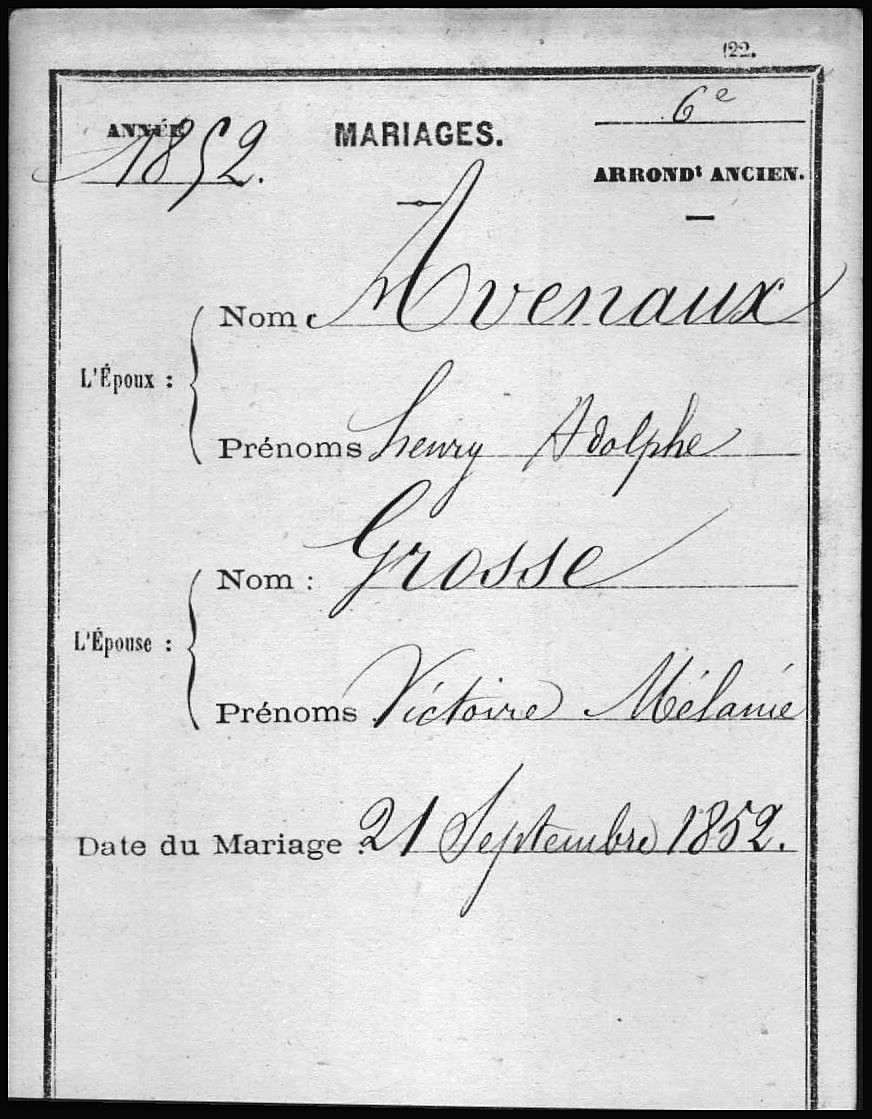 122.
ANNÉE 1852.
MARIAGES.
6e
ARRONDt ANCIEN.
L'Époux :
Nom : Avenaux
Prénoms henry Adolphe
L'Épouse :
Nom : Grosse
Prénoms Victoire Mélanie
Date du Mariage : 21 Septembre 1852.